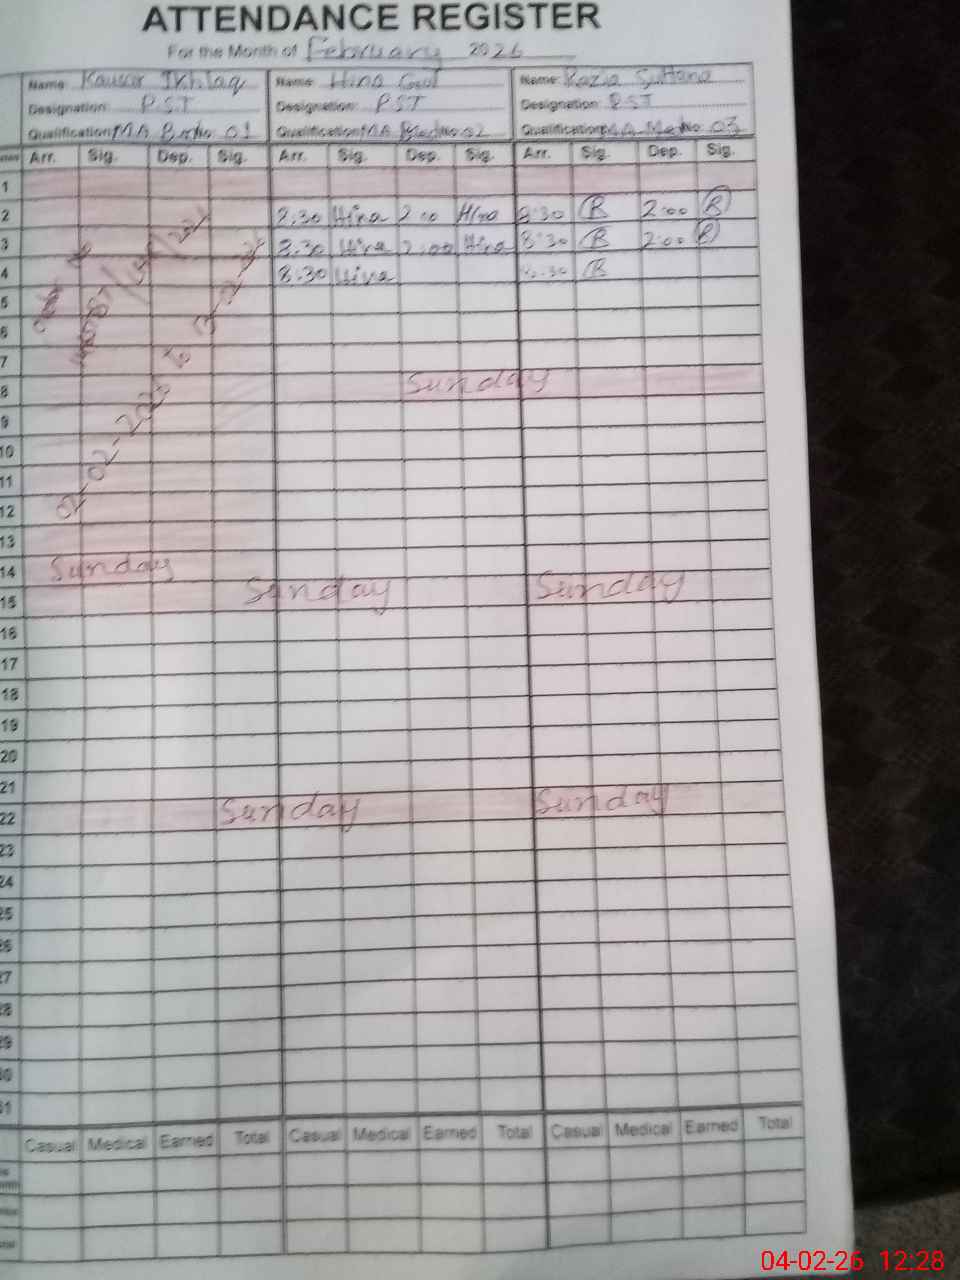 ATTENDANCE REGISTER
For the Month of February 2026
Name: Kausar Ikhlaq Name: Hina Gul Name: Razia Sultana
Designation: P.S.T Designation: PST Designation: PST
Qualification: MA No. 01 Qualification: MA No 02 Qualification: MA No. 03
Arr. Sig. Dep. Sig. Arr. Sig. Dep. Sig. Arr. Sig. Dep. Sig.
1
2 8.30 Hina 2.00 Hina 8:30 R 2:00 R
3 8.30 Hina 2:00 Hina 8:30 R 2:00 R
4 8:30 Hina 8:30 R
5
6
7
8 Sunday
9
10
11
12
13
14 Sunday
15 Sunday Sunday
16
17
18
19
20
21
22 Sunday Sunday
23
24
25
26
27
28
29
30
31
Casual Medical Earned Total Casual Medical Earned Total Casual Medical Earned Total
04-02-26 12:28